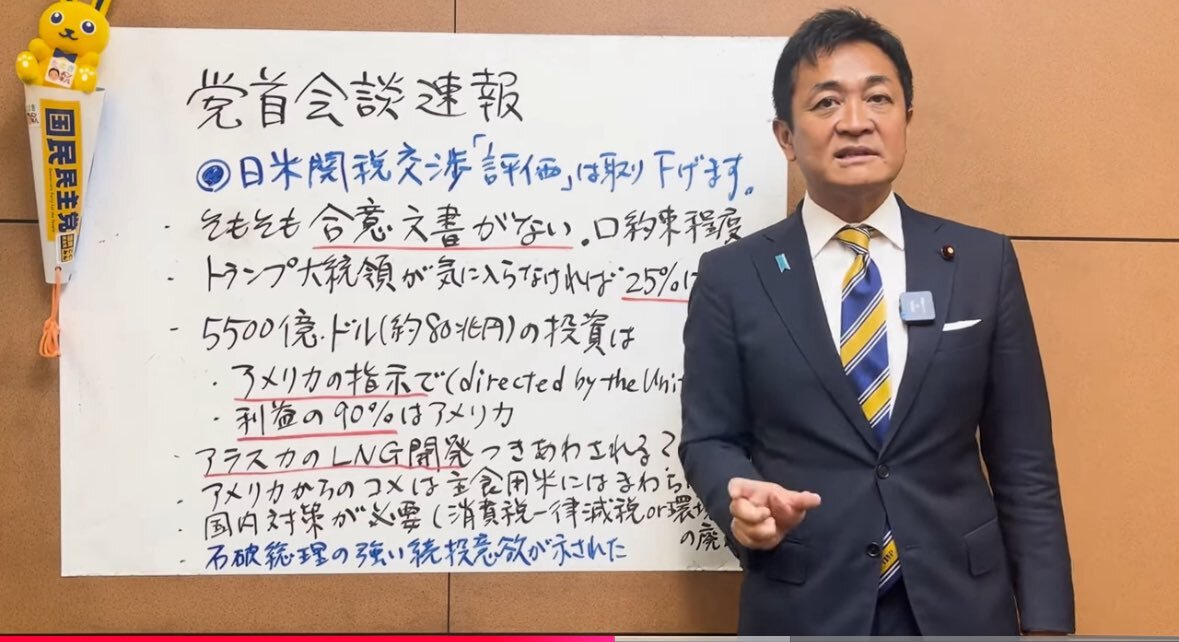 国民民主党
党首会談速報
◎日米関税交渉「評価」は取り下げます。
・そもそも合意文書がない。口約束程度
・トランプ大統領が気に入らなければ25%に
・5500億ドル(約80兆円)の投資は
・アメリカの指示で(directed by the Unit
・利益の90%はアメリカ
・アラスカのLNG開発つきあわされる?
・アメリカからのコメは主食用米にはまわら
・国内対策が必要(消費税一律減税or環境
の廃
石破総理の強い続投意欲が示された